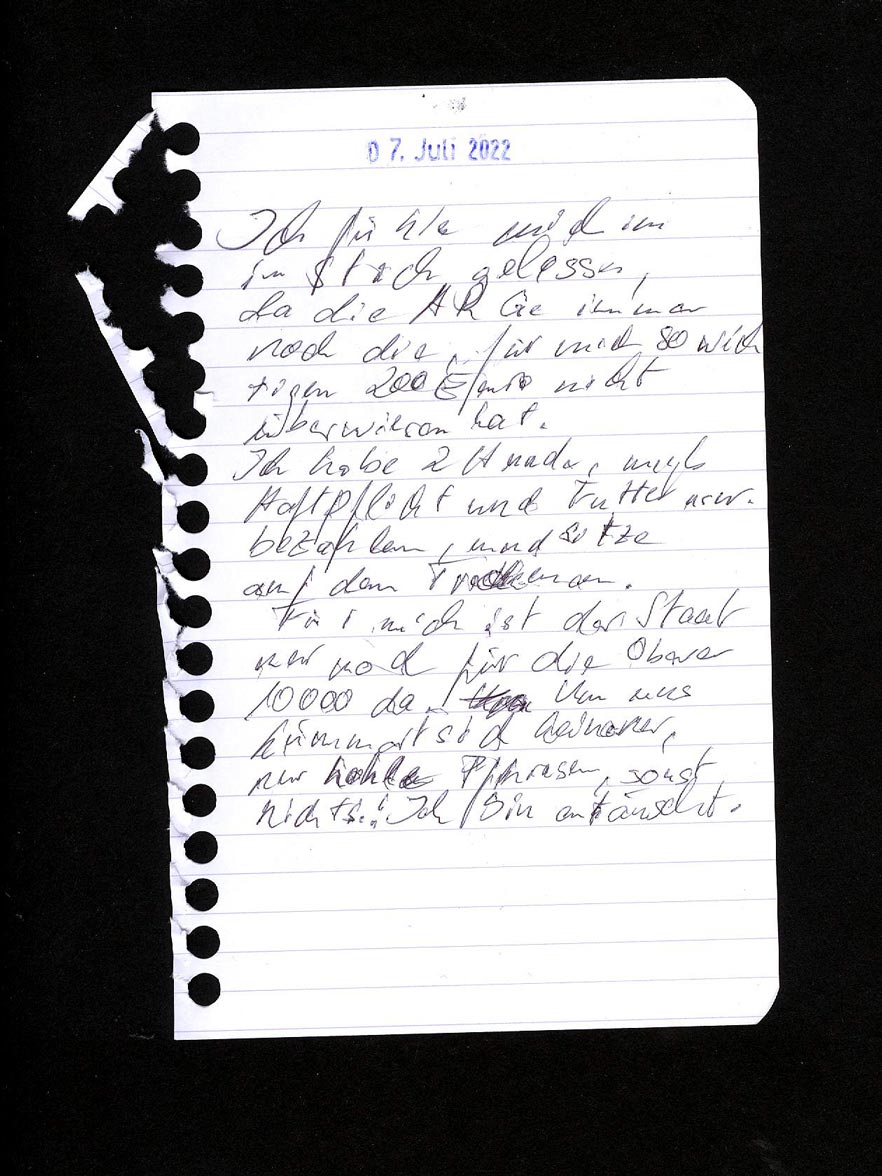 07. Juli 2022
Ich fühle mich im
im Stich gelassen,
da die ARGe immer
noch die, für mich so wich
tigen 200 Euro nicht
überwiesen hat.
Ich habe 2 Hunde, muß
Haftpflicht und Futter
bezahlen, und sitze
auf dem Trockenen.
Für mich ist der Staat
nur noch für die Oberen
10000 da. Um uns
kümmert sich keiner,
nur hohle Phrasen, sonst
nichts.: Ich bin entäuscht.